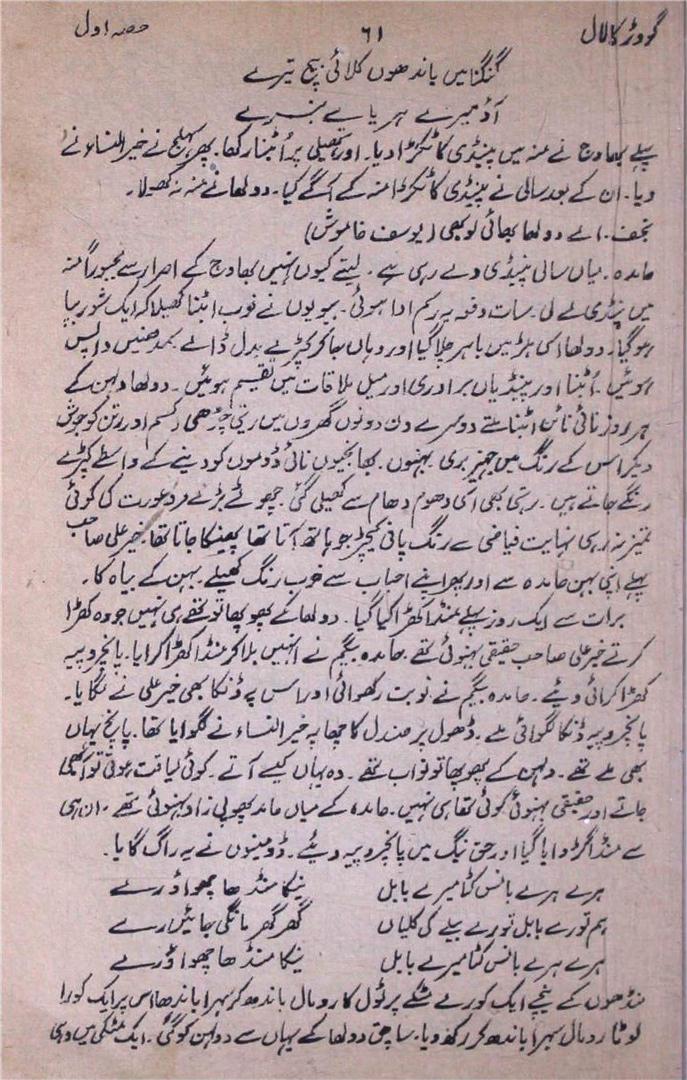 گودڑ کا لال ۶۱ حصہ اول
کنگنا میں باندھوں کلائی بیچ تیرے
آؤ میرے ہریالے بنرے
پہلے بھاوج نے منہ میں پینڈی کا ٹکڑا دیا۔ اور ہتھیلی پر اُبٹنا رکھا۔ پھر خیر النساء نے
دیا۔ ان کے بعد سالی نے پینڈی کا ٹکڑا منہ کے آگے کیا۔ دولھا نے منہ نہ کھولا۔
نجف۔ اے دولھا بھائی لو بھی (یوسف خاموش)
حامدہ۔ میاں سالی پینڈی دے رہی ہے۔ لیتے کیوں نہیں بھاوج کے اصرار سے مجبوراً منہ
میں پنڈی لے لی۔ سات دفعہ یہ رسم ادا ہوئی۔ بیویوں نے خوب ابٹنا کھیلا کہ ایک شور بپا
ہو گیا۔ دولھا اسی ہڑ میں باہر چلا گیا اور وہاں جا کر کپڑے بدل ڈالے۔ سمدھنیں واپس
ہوئیں۔ اُبٹنا اور پینڈیاں برادری اور میل ملاقات میں تقسیم ہوئیں۔ دولھا دلہن کے
ہر روز نائی نائن ابٹنا ملتے دوسرے دن دونوں گھروں میں رینی چڑھی (کسم اور رتن کو جوش
دیکر اس کے رنگ میں جہیز بری۔ بہنوں۔ بھانجیوں نائی ڈوموں کو دینے کے واسطے کپڑے
رنگے جاتے ہیں۔ رینی بھی اسی دھوم دھام سے کھیلی گئی۔ چھوٹے بڑے مرد عورت کی کوئی
تمیز نہ رہی نہایت فیاضی سے رنگ پانی کیچڑ جو ہاتھ آتا تھا پھینکا جاتا تھا۔ خیر علی صاحب
پہلے اپنی بہن حامدہ سے اور پھر اپنے احباب سے خوب رنگ کھیلے۔ بہن کے بیاہ کا۔
برات سے ایک روز پہلے منڈا کھڑا کیا گیا۔ دولھا کے پھوپھا تو تھے ہی نہیں جو وہ کھڑا
کرتے خیر علی صاحب حقیقی بہنوئی تھے۔ حامدہ بیگم نے انہیں بلا کر منڈا کھڑا کرایا۔ پانچ روپیہ
کھڑا کرائی دیئے۔ حامدہ بیگم نے نوبت رکھوائی اور اس پہ ڈنکا بھی خیر علی نے لگایا۔
پانچ روپیہ ڈنکا لگوائی ملے۔ ڈھول پر صندل کا چھاپہ خیر النساء نے لگوایا تھا۔ پانچ یہاں
بھی ملے تھے۔ دلہن کے پھوپھا تو نواب تھے۔ وہ یہاں کیسے آتے۔ کوئی لیاقت ہوتی تو آ بھی
جاتے اور حقیقی بہنوئی کوئی تھا ہی نہیں۔ حامدہ کے میاں حامد پھوپی زاد بہنوئی تھے۔ ان ہی
سے منڈا گڑوایا گیا اور حق نیگ میں پانچ روپیہ دیئے۔ ڈومنیوں نے یہ راگ گایا۔
ہرے ہرے بانس کٹا میرے بابل نیکا منڈھا چھواؤ رے
ہم تورے بابل تورے بیلے کی کلیاں گھر گھر مانگی جائیں رے
ہرے ہرے بانس کٹا میرے بابل نیکا منڈھا چھواؤ رے
منڈھوں کے نیچے ایک کورے مٹکے پر ٹول کا رومال باندھ کر سہرا باندھا اس پر ایک کورا
لوٹا رومال سہرا باندھ کر رکھ دیا۔ ساچق دولھا کے یہاں سے دولہن کو گئی۔ ایک مٹکی میں دہی